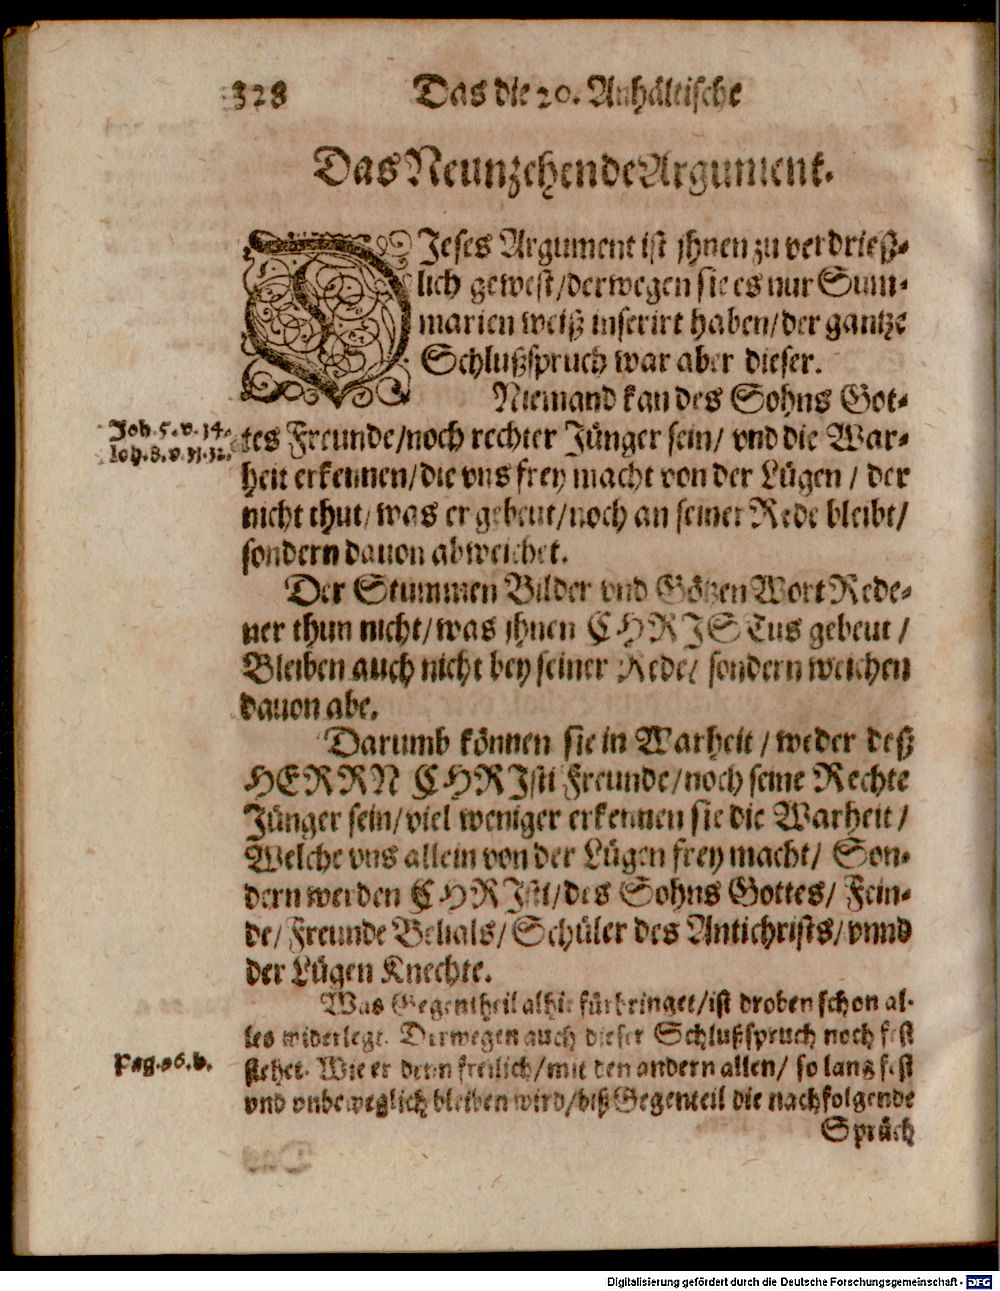 328 Das die 20. Anhältische
Das Neunzehende Argument.
DJeses Argument ist jhnen zu verdrieß-
lich gewest/derwegen sie es nur Sum-
marien weiß inserirt haben/der gantze
Schlußspruch war aber dieser.
Niemand kan des Sohns Got-
Joh. 5. v. 14.
Ioh. 8. v. 31. 32.
tes Freunde/noch rechter Jünger sein/ vnd die War-
heit erkennen/die vns frey macht von der Lügen / der
nicht thut/ was er gebeut/noch an seiner Rede bleibt/
sondern dauon abweichet.
Der Stummen Bilder vnd Götzen Wort Rede-
ner thun nicht/was jhnen CHRISTus gebeut /
Bleiben auch nicht bey seiner Rede/ sondern weichen
dauon abe.
Darumb können sie in Warheit / weder deß
HERRN CHRIsti Freunde/noch seine Rechte
Jünger sein/viel weniger erkennen sie die Warheit /
Welche vns allein von der Lügen frey macht/ Son-
dern werden CHRIsti/des Sohns Gottes/ Fein-
de/ Freunde Belials/ Schüler des Antichrists/ vnnd
der Lügen Knechte.
Was Gegentheil alhie fürbringet/ist droben schon al-
les widerlegt. Derwegen auch dieser Schlußspruch noch fest
Pag. 96. b.
stehet. Wie er denn freilich/mit den andern allen/ so lang fest
vnd vnbeweglich bleiben wird/biß Gegenteil die nachfolgende
Sprüch
Digitalisierung gefördert durch die Deutsche Forschungsgemeinschaft - DFG